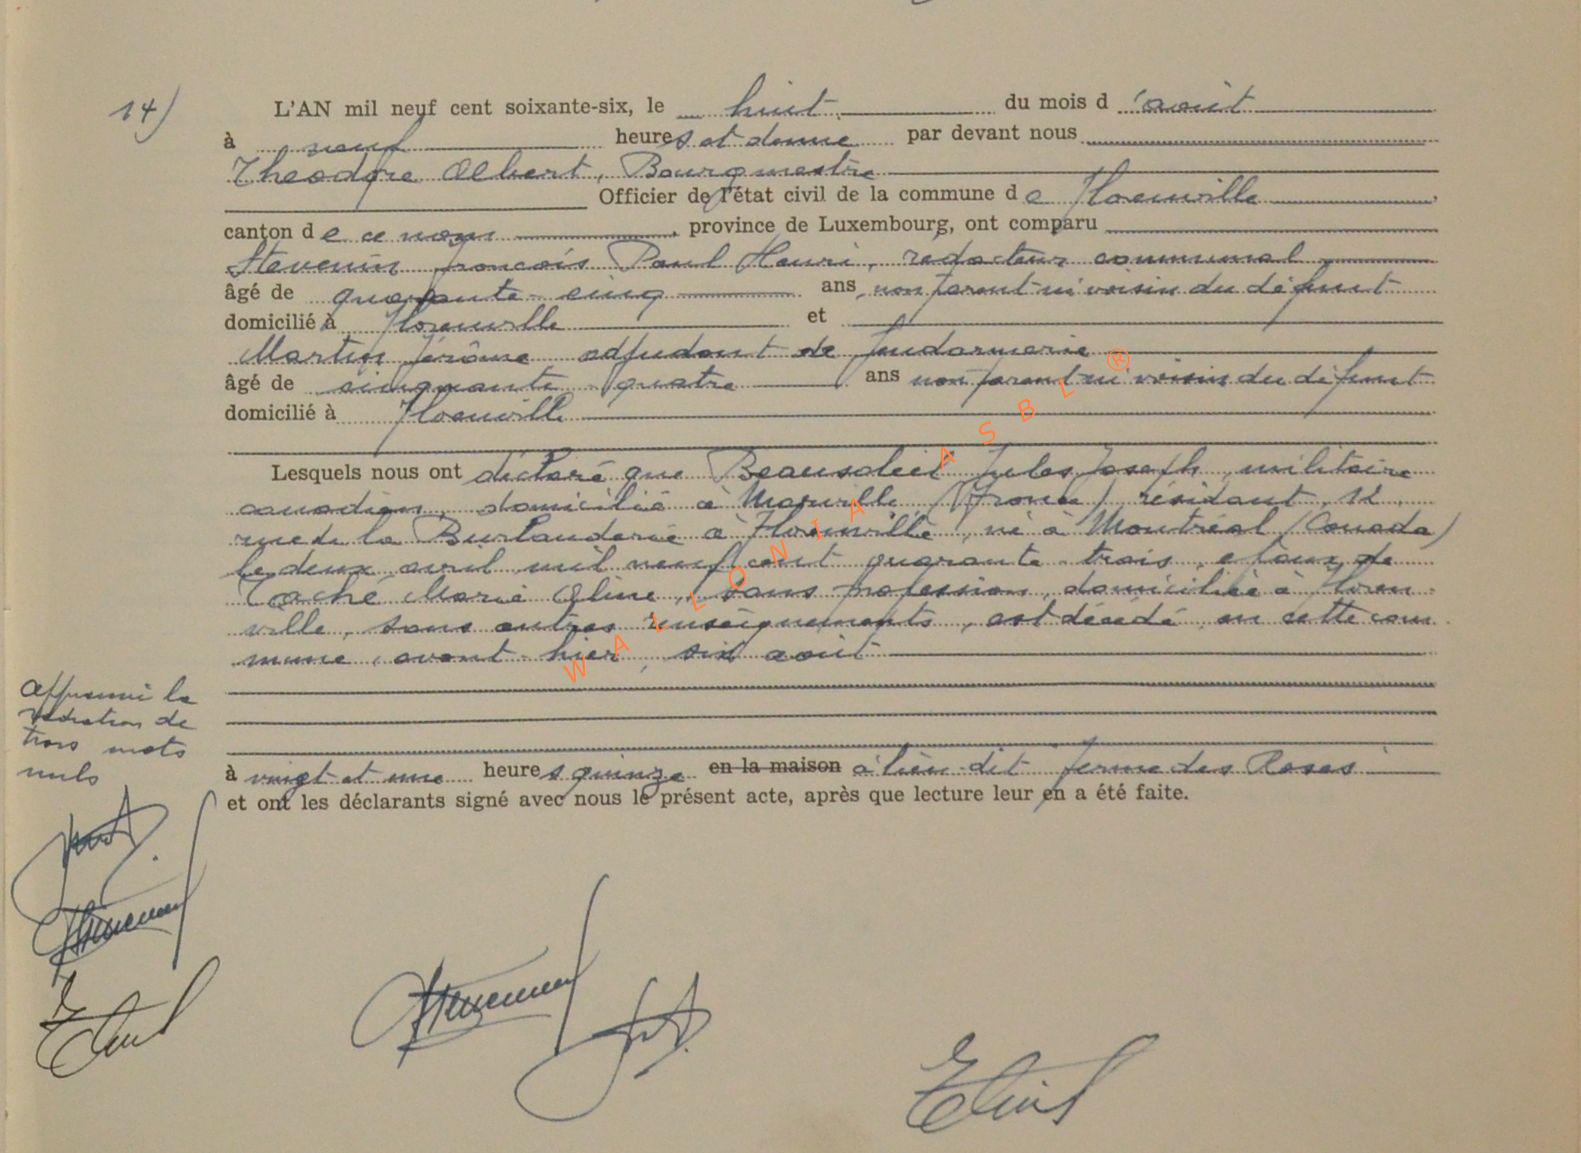 14)
L'AN mil neuf cent soixante-six, le huit du mois d'août
à neuf heures et demie par devant nous
Théodore Albert, Bourgmestre
Officier de l'état civil de la commune de Florenville
canton de ce nom, province de Luxembourg, ont comparu
Stevenin françois Paul Henri, rédacteur communal
âgé de quarante-cinq ans, non parent ni voisin du défunt
domicilié à Florenville et
Martin Jérôme adjudant de gendarmerie
âgé de cinquante quatre ans non parent ni voisin du défunt
domicilié à Florenville
Lesquels nous ont déclaré que Beausoleil Jules Joseph, militaire
canadien, domicilié à Marville (France) résidant 12,
rue de la Burlanderie à Florenville, né à Montréal (Canada)
le deux avril mil neuf cent quarante-trois, époux de
Taché Marie Aline, sans profession, domiciliée à Floren-
ville, sans autres renseignements, est décédé en cette com
mune, avant-hier, six août
à vingt et une heures quinze en la maison à lieu-dit ferme des Roses
et ont les déclarants signé avec nous le présent acte, après que lecture leur en a été faite.
Approuvé la
radiation de
trois mots
nuls
WALLONIA ASBL ®